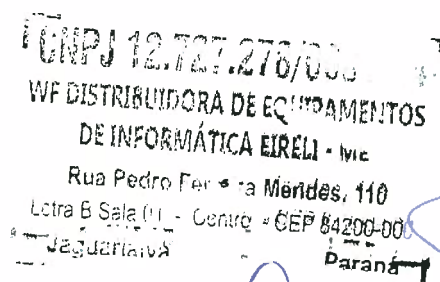 CNPJ 12.727.276/
WF DISTRIBUIDORA DE EQUIPAMENTOS
DE INFORMÁTICA EIRELI - ME
Rua Pedro Mendes, 110
Letra B Sala - Centro - CEP 84200-000
Jaguariaíva Paraná